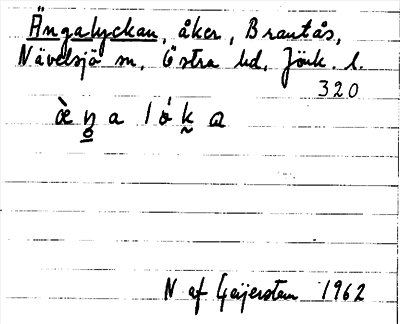 Ängalyckan, åker, Brantås,
Nävelsjö sn, Östra hd, Jönk. l.
320
N af Geijerstam 1962